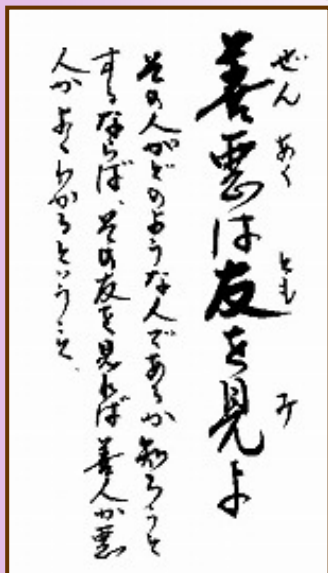 善悪は友を見よ
ぜんあく とも み
その人がどのような人であるか知ろうと
するならば、その友を見れば善人か悪
人かよくわかるということ、